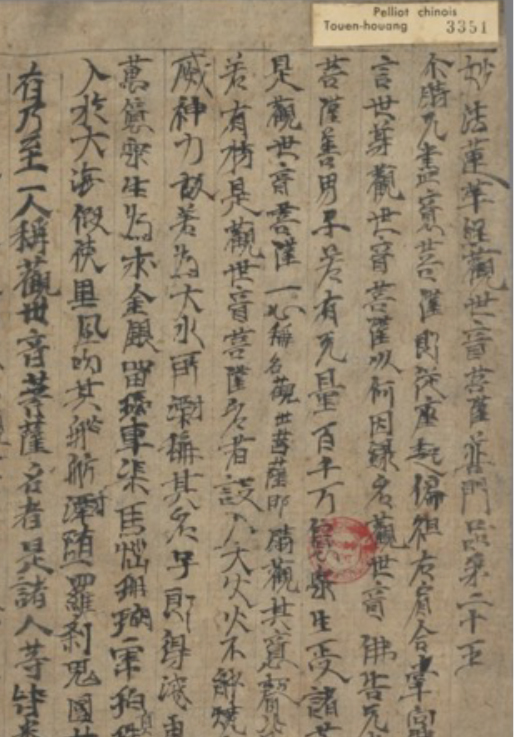 Pelliot chinois
Touen-houang 3351
妙法蓮華經觀世音菩薩普門品第二十五
尒時无盡意菩薩即從座起偏袒右肩合掌向
言世尊觀世音菩薩以何因緣名觀世音佛告无
菩薩善男子若有无量百千万億衆生受諸苦
是觀世音菩薩一心稱名觀世音菩薩即時觀其音聲
若有持是觀世音菩薩名者設入大火火不能燒
威神力故若為大水所漂稱其名号即得淺
萬億衆生為求金銀留璃車渠馬瑙珊瑚
入於大海假使黒風吹其舩舫漂堕羅刹鬼國
有乃至一人稱觀世音菩薩名者是諸人等皆